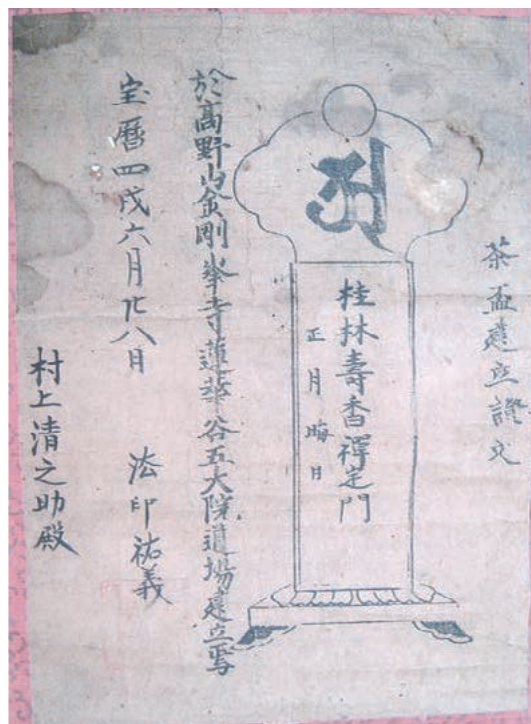 茶盃建立證文
桂林壽香禪定門
正月晦日
於高野山金剛峯寺蓮華谷五大院道場建立焉
宝暦四戌六月廿八日
法印祐義
村上清之助殿